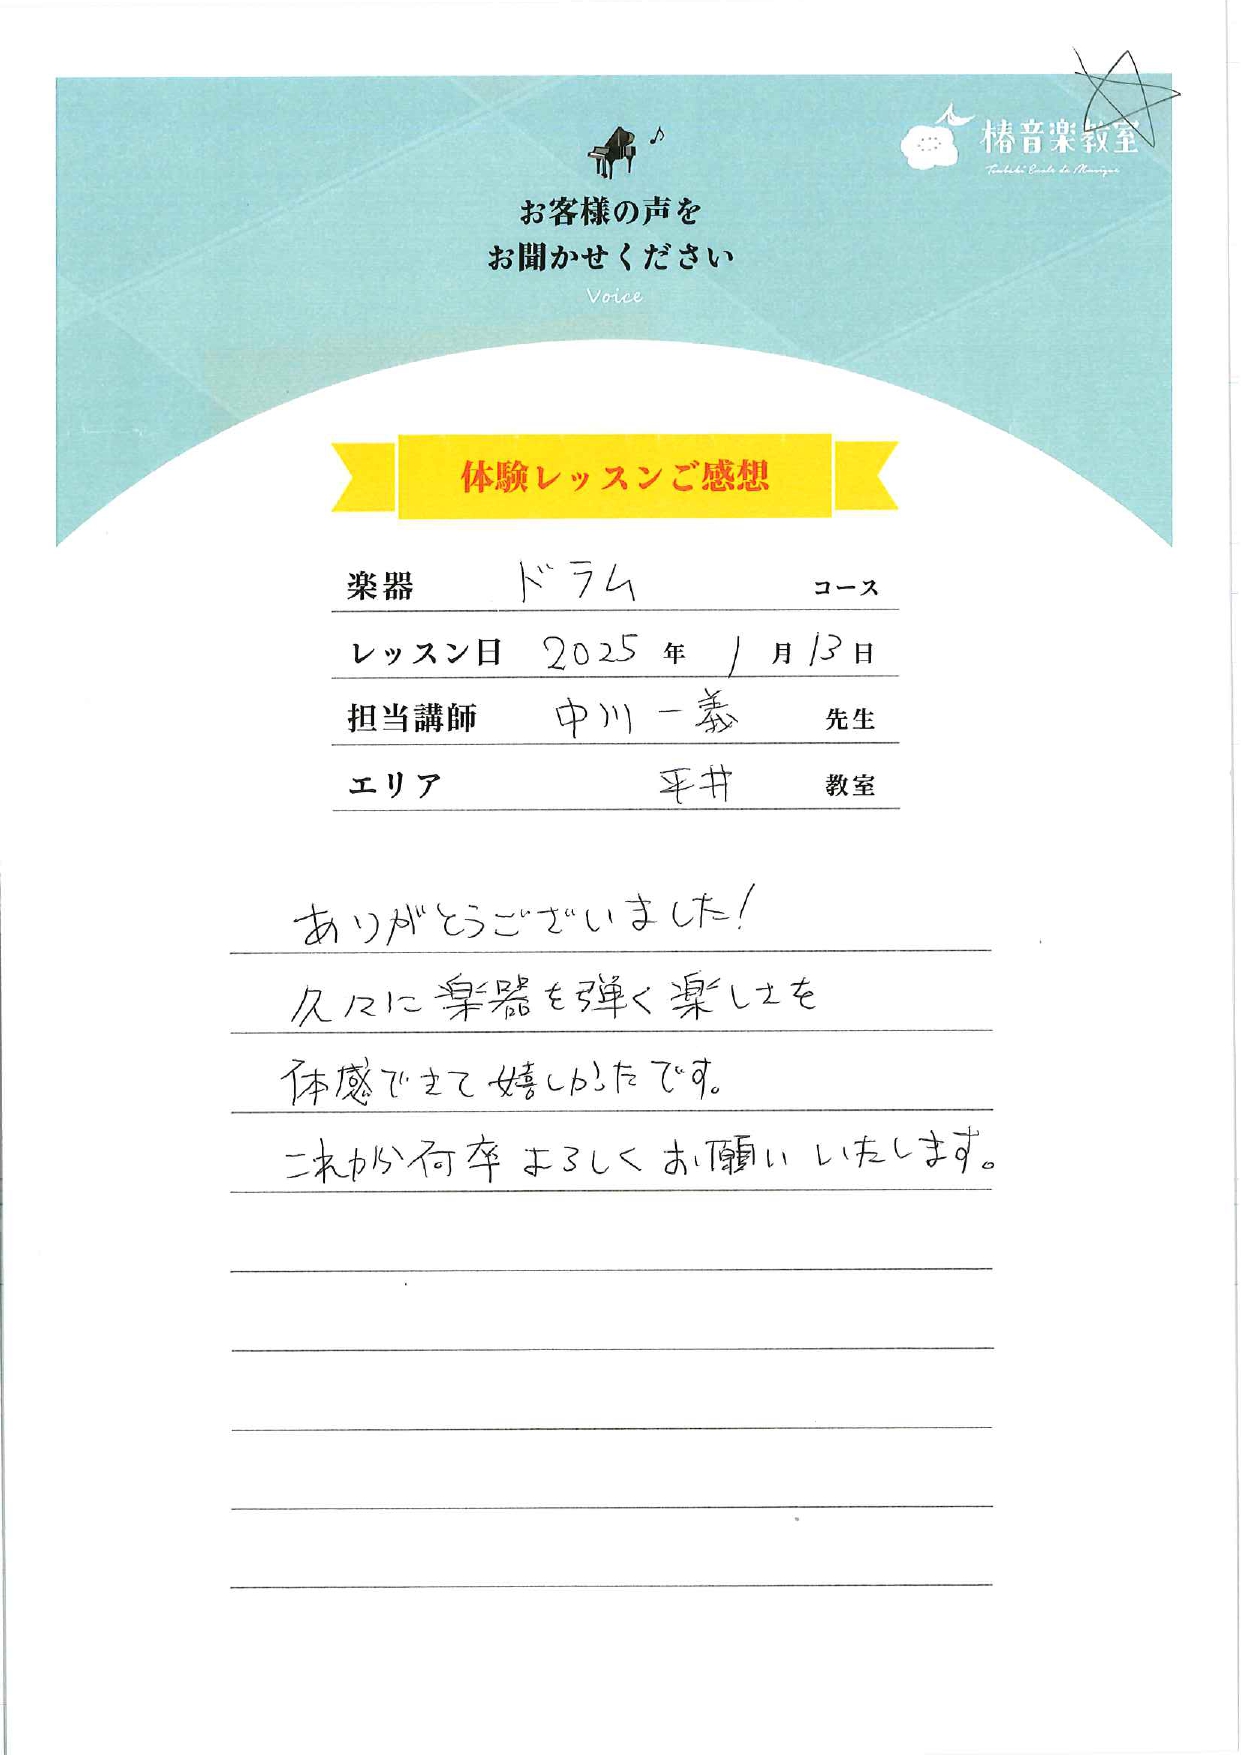 椿音楽教室
Tsubaki Ecole de Musique
お客様の声を
お聞かせください
Voice
体験レッスンご感想
楽器 ドラム コース
レッスン日 2025 年 1 月 13 日
担当講師 中川 一義 先生
エリア 平井 教室
ありがとうございました!
久々に楽器を弾く楽しさを
体感できて嬉しかったです。
これから何卒よろしくお願いいたします。